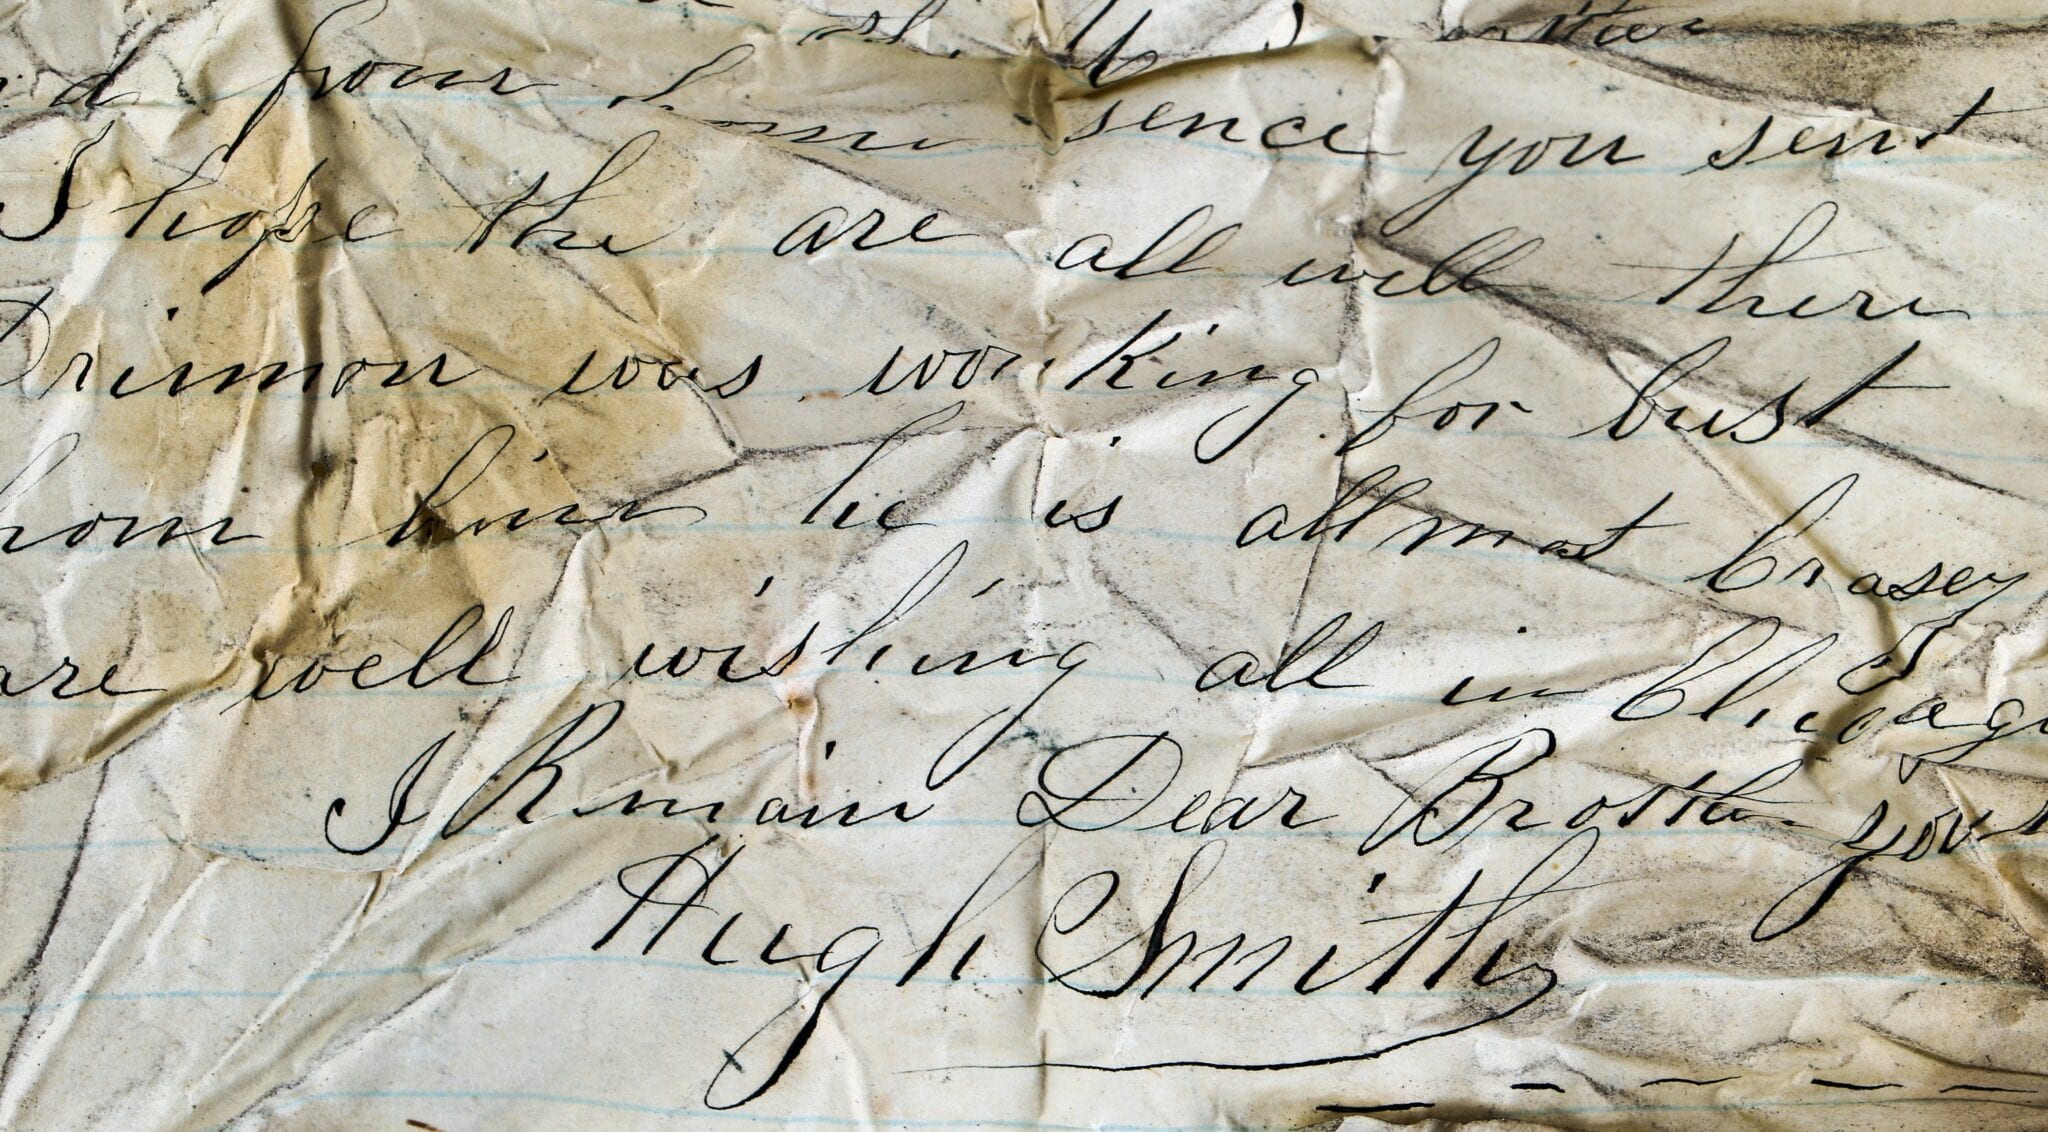 from home sence you sent
I hope the are all well there
was working for bust
him he is allmost Crasey
are well wishing all in Chicago
I Rmain Dear Brother your
Hugh Smith